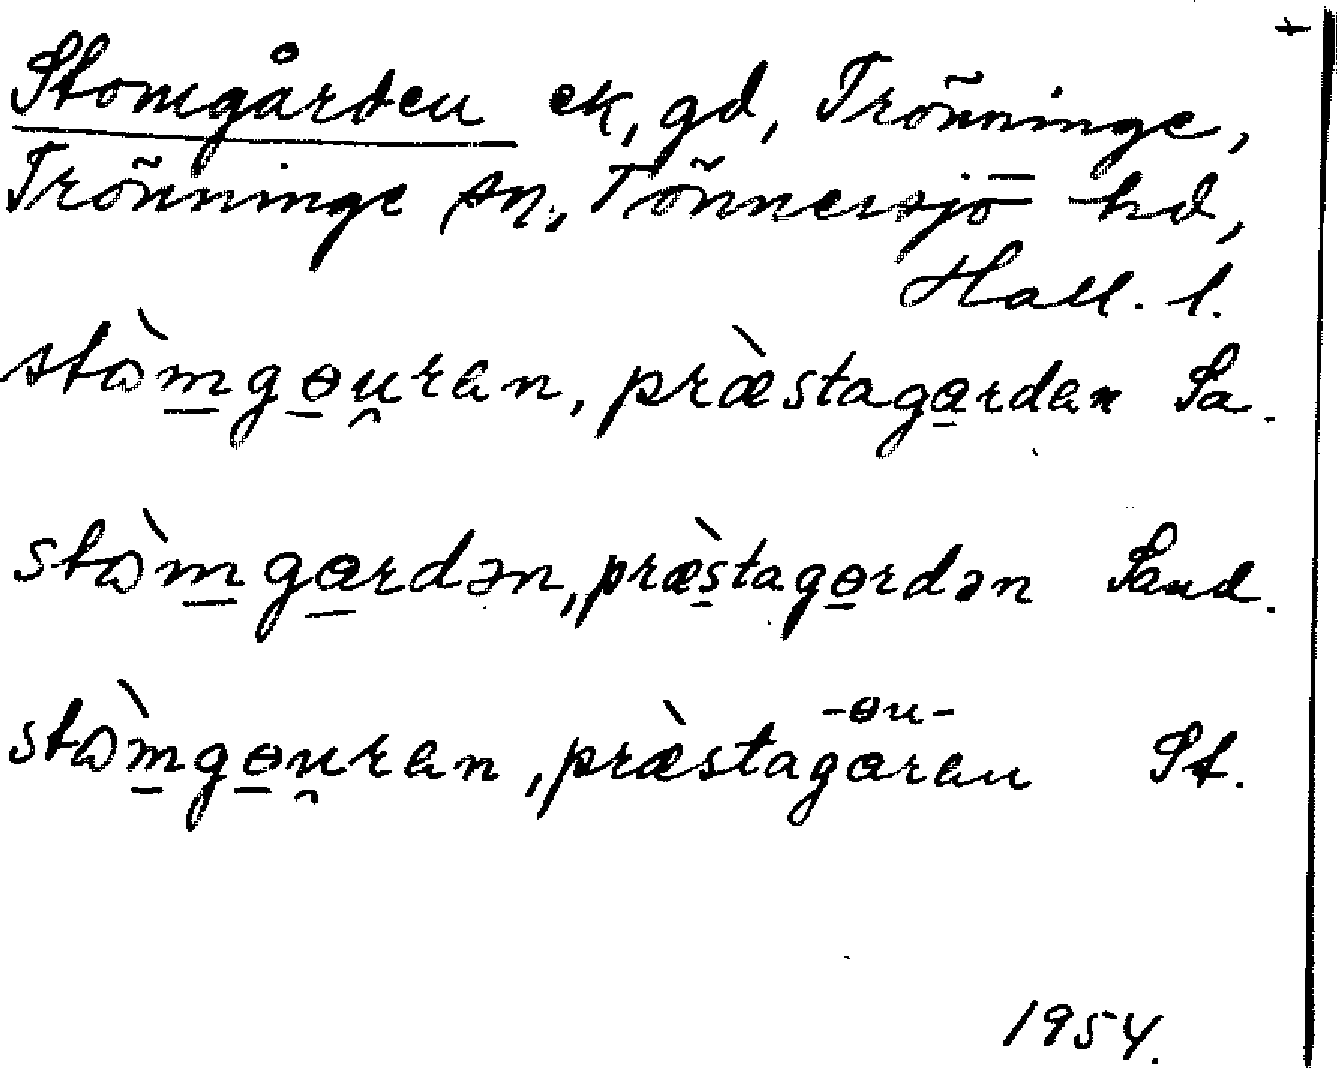 +
Stomgården ek, gd, Trönninge,
Trönninge sn, Tönnersjö hd,
Hall. l.
stɷ̀mgɵu̯ran, præ̀stagardan Sa.
stɷ̀mgardən, præ̀stagɵrdən Sand.
-ɵu-
stɷ̀mgɵu̯ran, præ̀stagaran St.
1954.